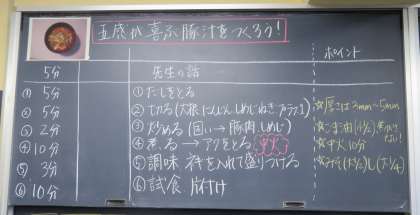 五感が喜ぶ豚汁をつくろう!
ポイント
5分 先生の話
① 5分 ①だしをとる
② 5分 ②切る(大根 にんじん しめじ ねぎ ) ☆厚さは3mm~5mm
③ 2分 ③炒める(固い→豚肉、しめじ) ☆ごま油(小½)
④ 10分 ④煮る→アクをとる 中火 ☆中火10分
⑤ 3分 ⑤調味 ネギを入れて盛りつける ☆みそ
⑥ 10分 ⑥試食 片付け